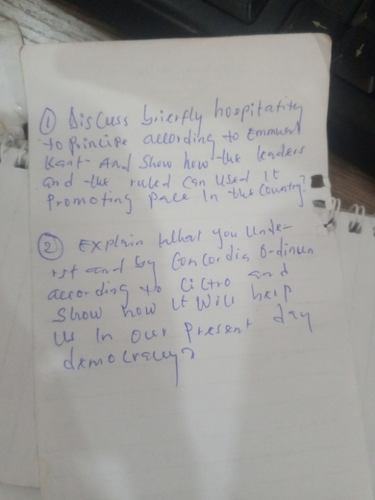 ① Discuss brierfly hospitatity
to Principe according to Emmuent
Kant- And Show how the leaders
and the ruled can Used It
Promoting Pace In the Country?
② Explain What you Unde-
rst and by Concordia Ordinun
according to Cictro and
Show how It Will help
Us In our Present day
democracy?